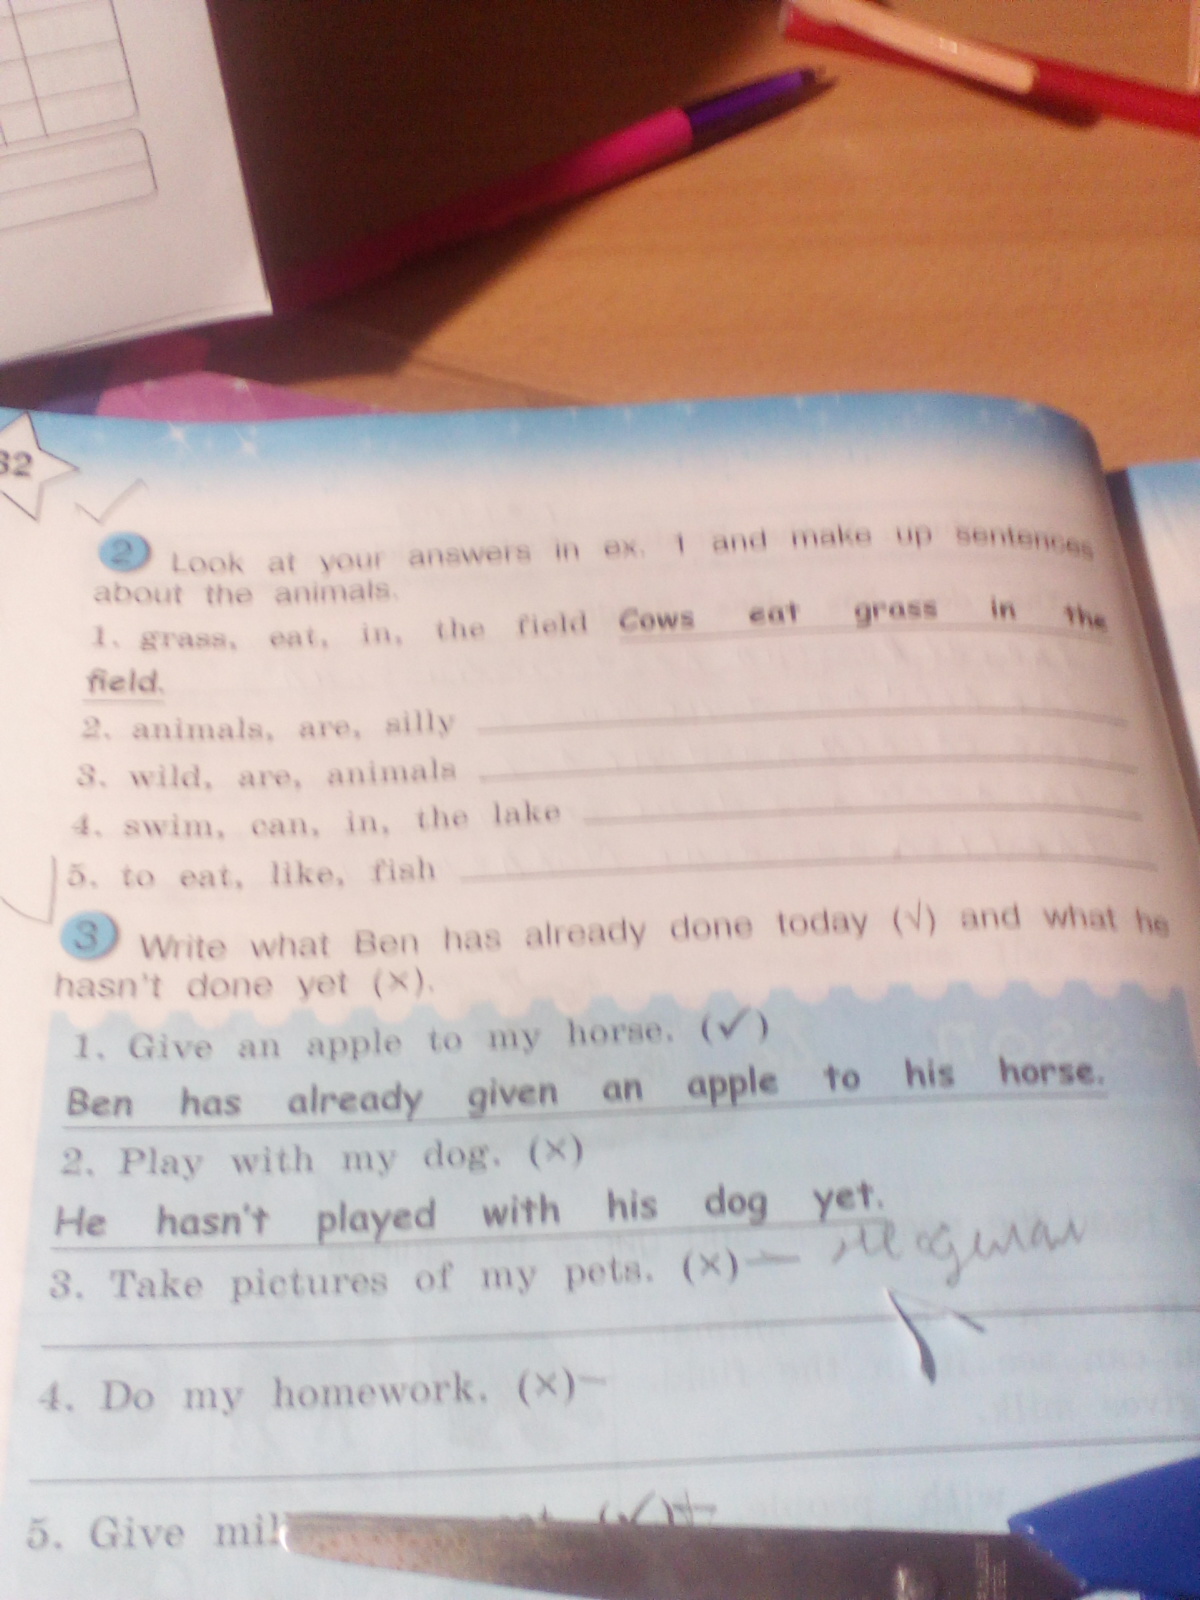 32
2 Look at your answers in ex. 1 and make up sentences
about the animals.
1. grass, eat, in, the field Cows eat grass in the
field.
2. animals, are, silly
3. wild, are, animals
4. swim, can, in, the lake
5. to eat, like, fish
3 Write what Ben has already done today (√) and what he
hasn't done yet (×).
1. Give an apple to my horse. (✓)
Ben has already given an apple to his horse.
2. Play with my dog. (×)
He hasn't played with his dog yet.
3. Take pictures of my pets. (×) —
4. Do my homework. (×) –
5. Give (✓) +